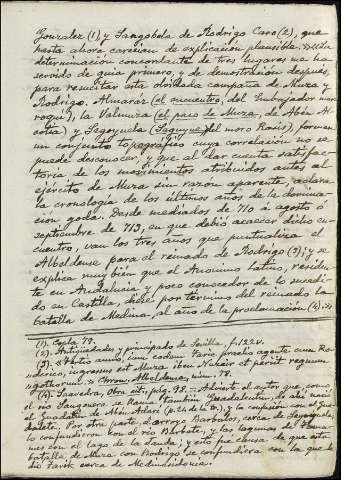 Gonzalez (1) y Sangobela de Rodrigo Caro (2), que
hasta ahora carecian de explicación plausible. »« La
determinacion concordante de tres lugares me ha
servido de guia primero, y de demostración despues,
para resucitar esta olvidada campaña de Muza y
Rodrigo. Almaraz (el encuentro, del Embajador mar
roquí), la Valmuza (el paso de Muza, de Abén Al
cotia) y Segoyuela (Saguyue del moro Rasis), forman
un conjunto topográfico cuya correlación no se
puede desconocer, y que al dar cuenta satisfac
toria de los movimientos atribuidos antes al
ejército de Muza sin razon aparente, aclara
la cronologia de los últimos años de la domina
ción goda. Desde mediados de 710 á agosto ó
septiembre de 713, en que debió acaecer dicho en-
cuentro, van los tres años que puntualiza el
Albeldense para el reinado de Rodrigo (3); y se
explica muy bien que el Anonimo latino, residen
te en Andalucia y poco conocedor de lo sucedi-
do en Castilla, diese por termino del reinado, la
batalla de Medina, al año de la proclamación (4).»
(1). Copla 79.
(2). Antigüedades y principado de Sevilla, f. 122 v.
(3). «Istius anno, cum eodem Taric praelio agente cum Ro-
derico, ingressus est Muza iben Nuzeir et periit regnum
gothorum.» Cron. Albeldense, núm. 78.
(4). Saavedra, Obra cit., pág. 98. = Advierte el autor que, como
el rio Yaguares se llama tambien Guadalentin, de ahí nació
el Guadatin de Abén Adarí (p. 2ª de la tr.), y la confusión con el Gua
dalete. Por otra parte, el arroyo Barbalos, cerca de Segoyuela,
lo confundieron con el rio Barbate, y las lagunas de Tama-
mes con el lago de la Janda; y esto fué causa de que esta
batalla, de Muza con Rodrigo se confundiera con la que
dió Tarik cerca de Medinasidonia.